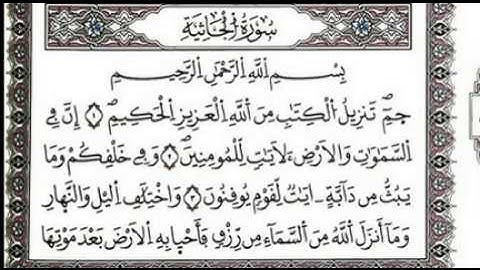 سُورَةُ الْجَاثِيَةِ
بِسْمِ اللَّهِ الرَّحْمَٰنِ الرَّحِيمِ
حمٓ تَنزِيلُ الْكِتَٰبِ مِنَ اللَّهِ الْعَزِيزِ الْحَكِيمِ ١ إِنَّ فِي
السَّمَٰوَٰتِ وَالْأَرْضِ لَأَيَٰتٍ لِّلْمُومِنِينَ ٢ وَفِي خَلْقِكُمْ وَمَا
يَبُثُّ مِن دَآبَّةٍ ءَايَٰتٌ لِّقَوْمٍ يُوقِنُونَ ٣ وَاخْتِلَٰفِ الَّيْلِ وَالنَّهَارِ
وَمَآ أَنزَلَ اللَّهُ مِنَ السَّمَآءِ مِن رِّزْقٍ فَأَحْيَا بِهِ الْأَرْضَ بَعْدَ مَوْتِهَا